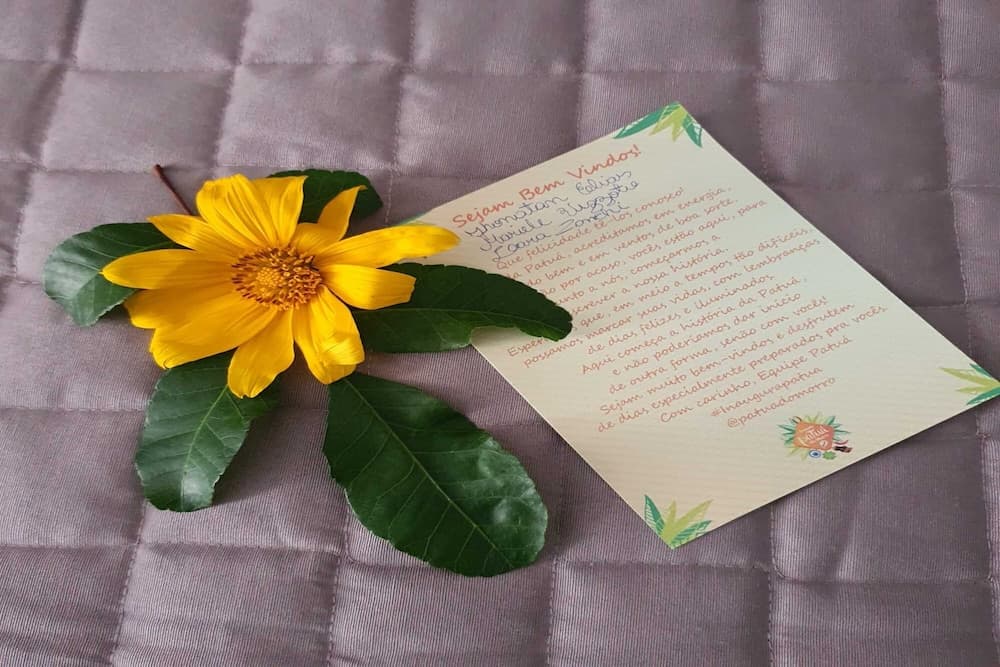 Sejam Bem Vindos!
Jhonatan
Mariele
Zanchi
Que felicidade te-los conosco!
Patuá, acreditamos em energia,
bem e em ventos de boa sorte
por acaso, vocês estão aqui, para
junto a nós, começarmos a
escrever a nossa história.
Esperamos que, em meio a tempos tão difíceis,
possamos marcar suas vidas com lembranças
de dias felizes e iluminados.
Aqui começa a história da Patuá,
e não poderíamos dar início
de outra forma, senão com vocês!
Sejam muito bem vindos e desfrutem
de dias especialmente preparados pra vocês
Com carinho, Equipe Patuá
#Inaugurapatua
@patuadomorro
Patuá